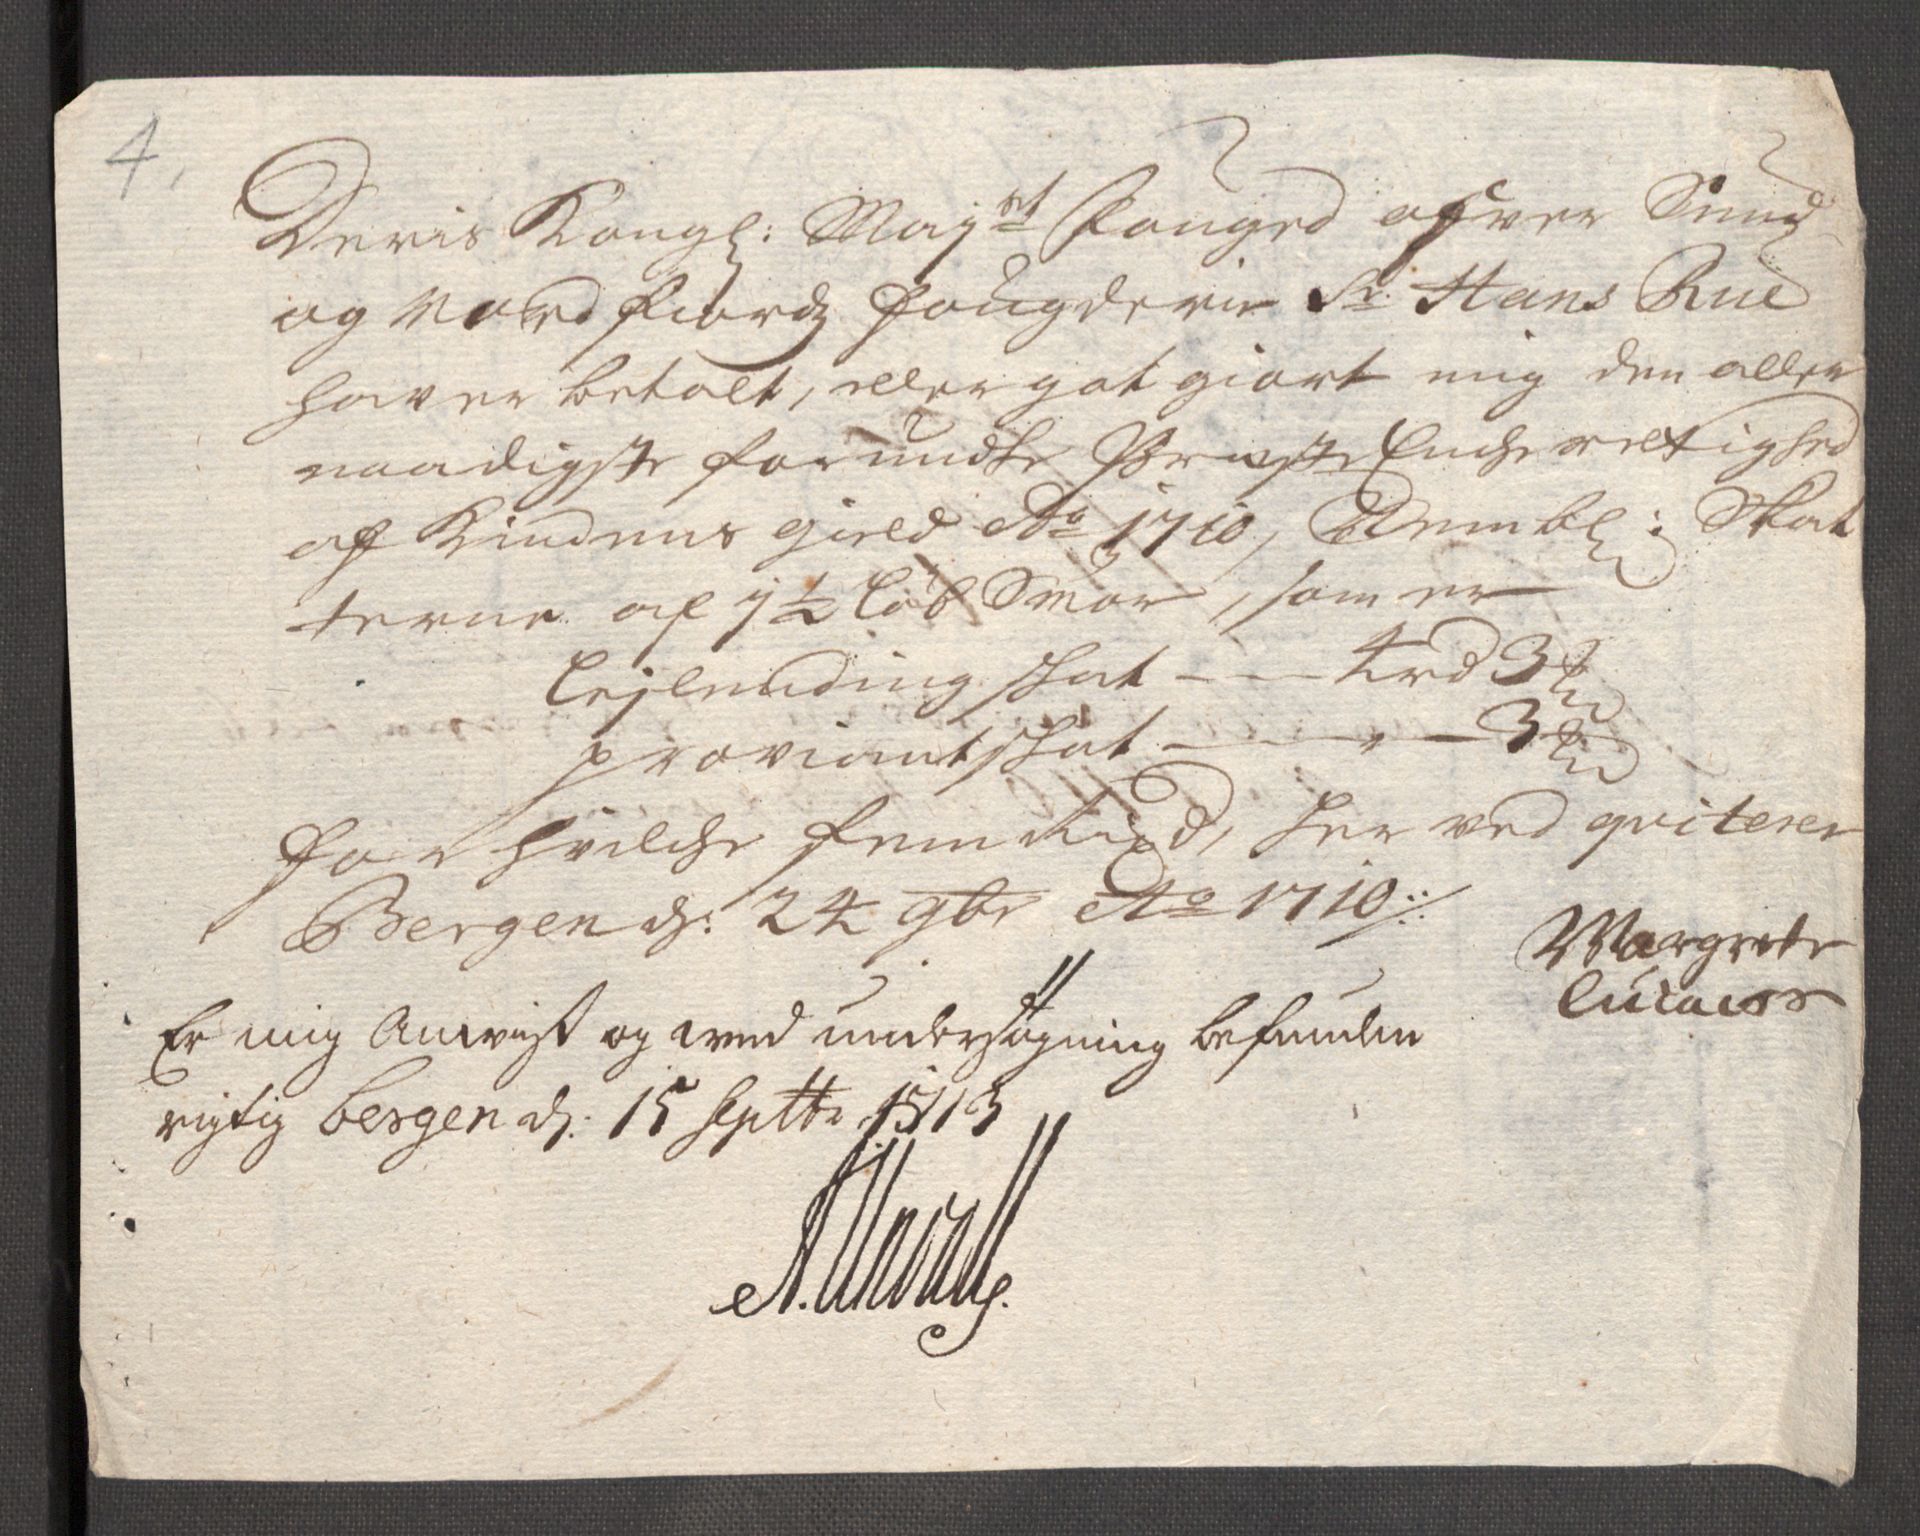 4,
Deris Kongl: Maj:st Fouged ofver Sund
og Nordfiordz fougderie Sr Hans Rue
haver betalt, eller got giort mig den aller
naadigste forundte Præste Enche rettighed
af Kindens gield Ao 1710, Nembl: Skat
terne af 7½ løb Smør, som er
Lejlending skat — 4 rd 3
proviant skat — 3
for hvilche fem Rixd, her ved qviterer
Bergen d: 24 9br Ao 1710
Margrete
Er mig Anvist og wed undersøgning befunden
rigtig bergen d: 15 Septbr 1713